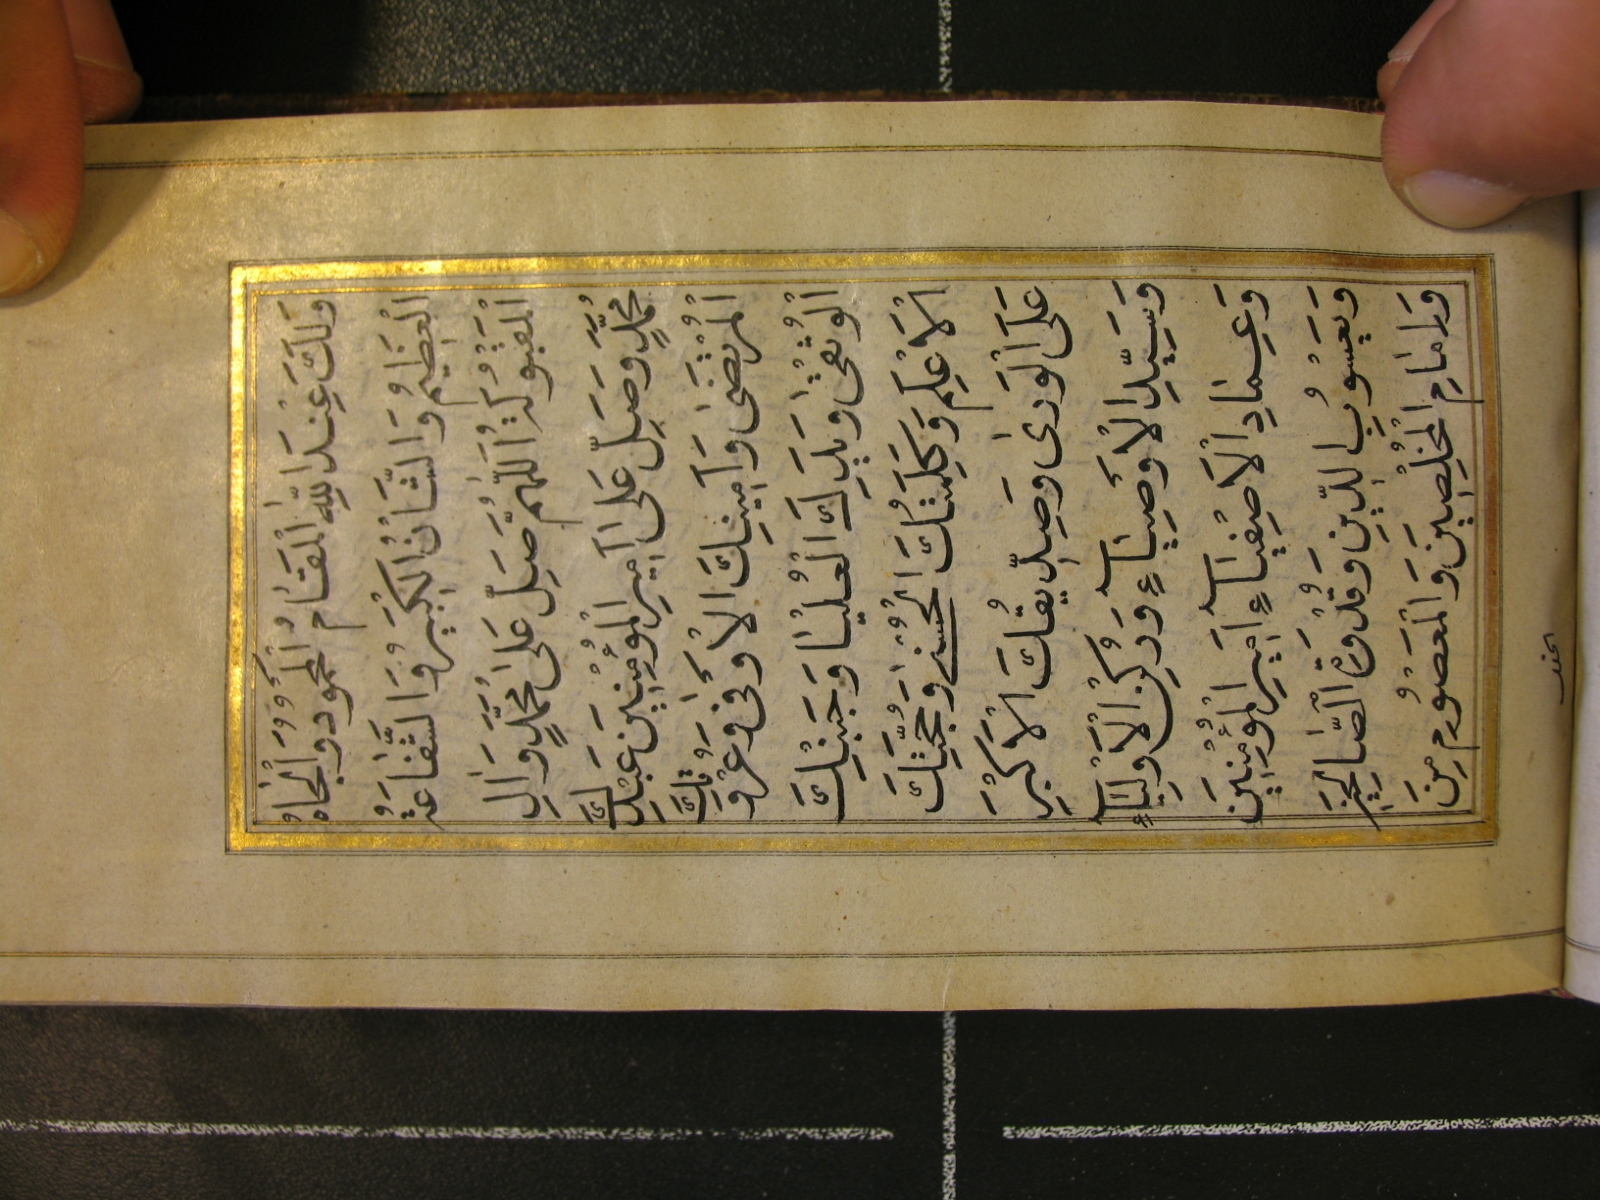 وَلَكَ عِنْدَ اللهِ الْمَقَامُ الْمَحْمُودُ وَالْجَاهُ
الْعَظِيمُ وَالشَّانُ الْكَبِيرُ وَالشَّفَاعَةُ
الْمَقْبُولَةُ اَللّٰهُمَّ صَلِّ عَلٰى مُحَمَّدٍ وَاٰلِ
مُحَمَّدٍ وَصَلِّ عَلٰى اَمِيرِ الْمُؤْمِنِينَ عَبْدِكَ
الْمُرْتَضٰى وَاَمِينِكَ الْاَوْفٰى وَعُرْوَتِكَ
الْوُثْقٰى وَيَدِكَ الْعُلْيَا وَجَنْبِكَ
الْاَعْلٰى وَكَلِمَتِكَ الْحُسْنٰى وَحُجَّتِكَ
عَلَى الْوَرٰى وَصِدِّيقِكَ الْاَكْبَرِ
وَسَيِّدِ الْاَوْصِيَاءِ وَرُكْنِ الْاَوْلِيَاءِ
وَعِمَادِ الْاَصْفِيَاءِ اَمِيرِ الْمُؤْمِنِينَ
وَيَعْسُوبِ الدِّينِ وَقُدْوَةِ الصَّالِحِينَ
وَاِمَامِ الْمُخْلِصِينَ وَالْمَعْصُومِ مِنَ